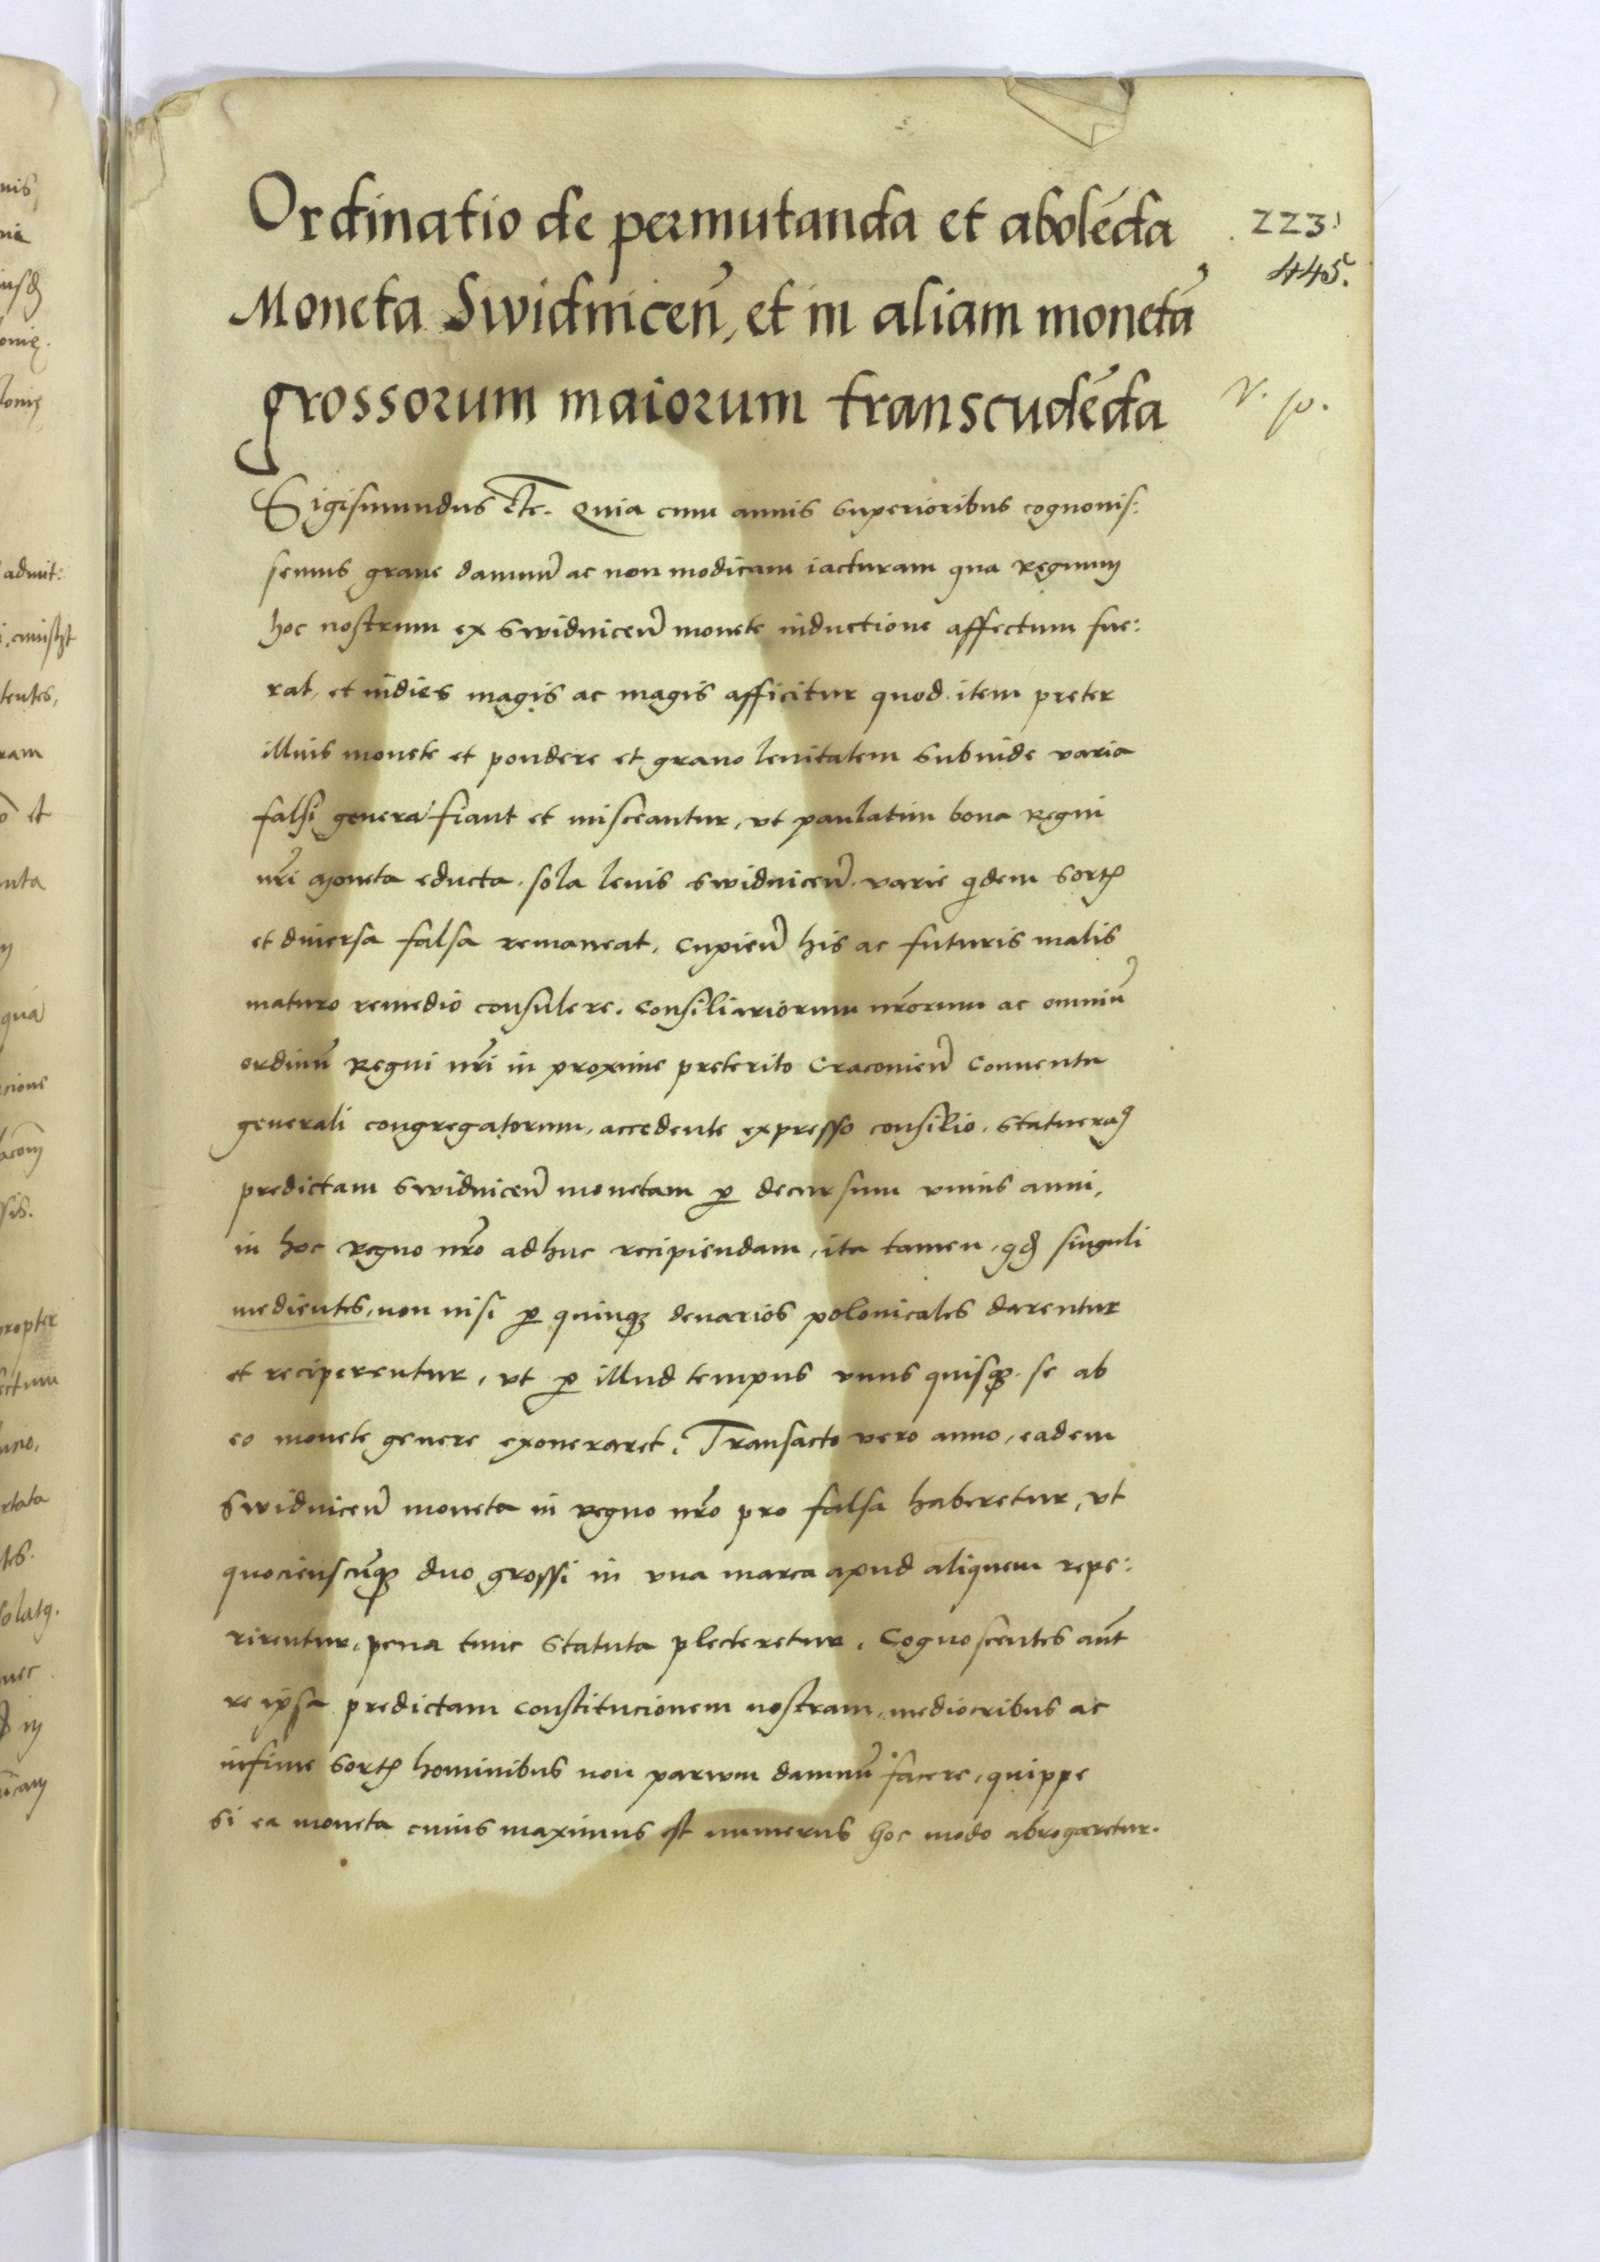 Ordinatio de permutanda et abolēda
Moneta Swidnicen̄, et in aliam monetā
grossorum maiorum transcudēda
223
445.
Sigismundus etc. Quia cum annis superioribus cognouis:
semus graue damnū ac non modicam iacturam qua Regnum
hoc nostrum ex Swidnicen̄ monete inductione affectum fue:
rat, et indies magis ac magis afficitur quod item preter
illius monete et pondere et grano lenitatem subinde varia
falsi genera fiant et misceantur, vt paulatim bona Regni
nr̄i moneta educta, sola leuis Swidnicen̄ varie qdem sortꝭ
et diuersa falsa remaneat, Cupien̄ his ac futuris malis
maturo remedio consulere, Consiliariorum nr̄orum ac omniū
ordinū Regni nr̄i in proxime preterito Cracouien̄ Conuentu
generali congregatorum, accedente expresso consilio, statueraꝫ
predictam Swidnicen̄ monetam ꝑ decursum vnius anni,
in hoc regno nr̄o adhuc recipiendam, ita tamen, qđ singuli
medientes, non nisi ꝑ quinqꝫ denarios polonicales darentur
et reciperentur, vt ꝑ illud tempus vnus quisqꝫ se ab
eo monete genere exoneraret, Transacto vero anno, eadem
Swidnicen̄ moneta in regno nr̄o pro falsa haberetur, vt
quocienscūqꝫ duo grossi in vna marca apud aliquem repe:
rirentur, pena tunc statuta plecteretur, Cognoscentes aūt
re ipsa predictam constitucionem nostram, mediocribus ac
infime sortꝭ hominibus non parwm damnū facere, quippe
si ea moneta cuius maximus est numerus hoc modo abrogaretur.